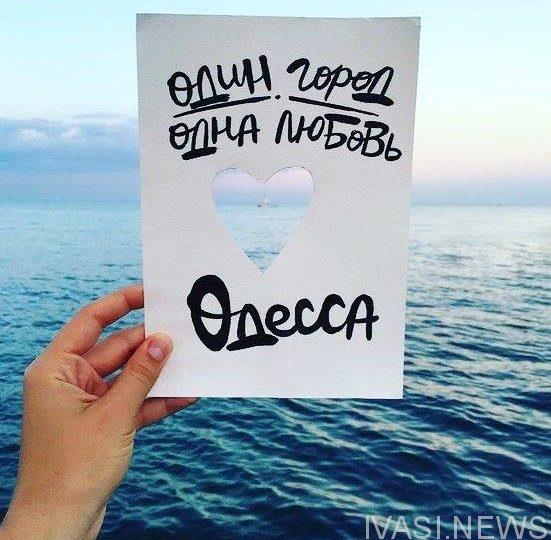 один город
одна любовь
Одесса
IVASI.NEWS